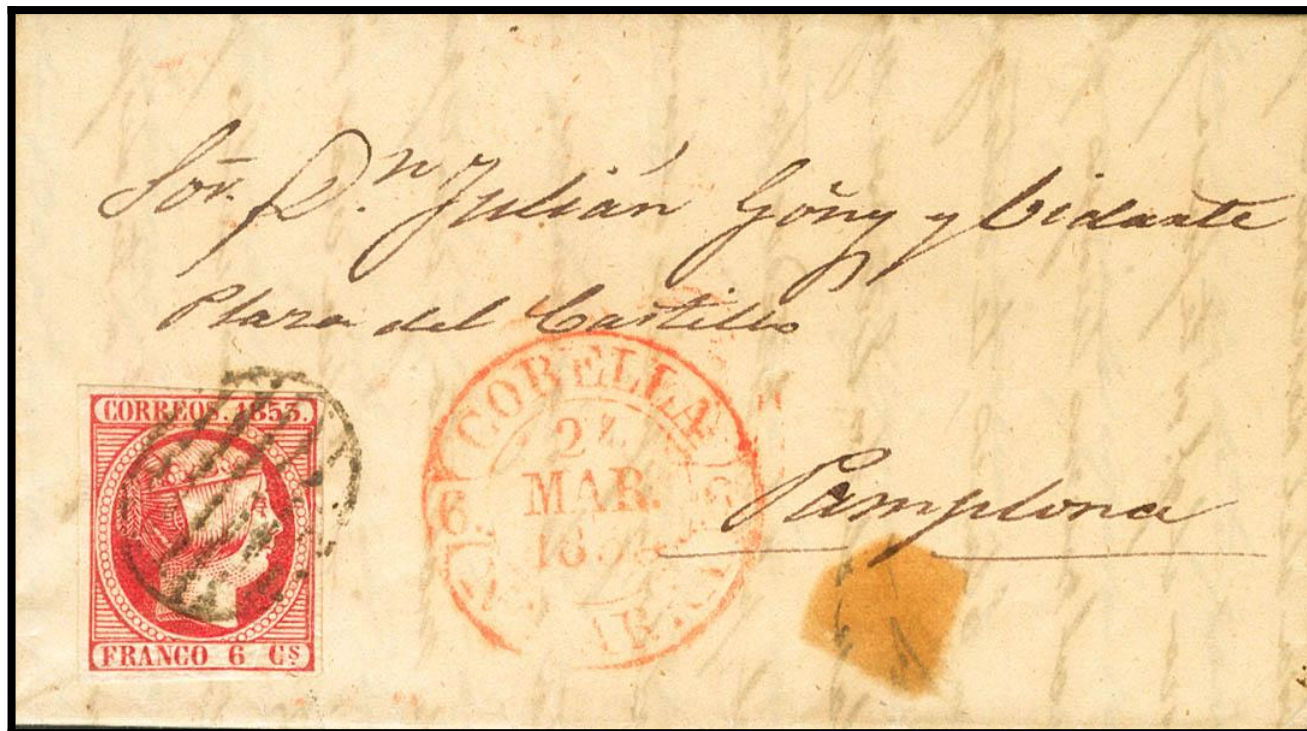 Sor. Dn. Julián Goñy y Vidarte
Plaza del Castillo
Pamplona
CORREOS. 1853.
FRANCO 6 Cs
CORELLA
24
MAR.